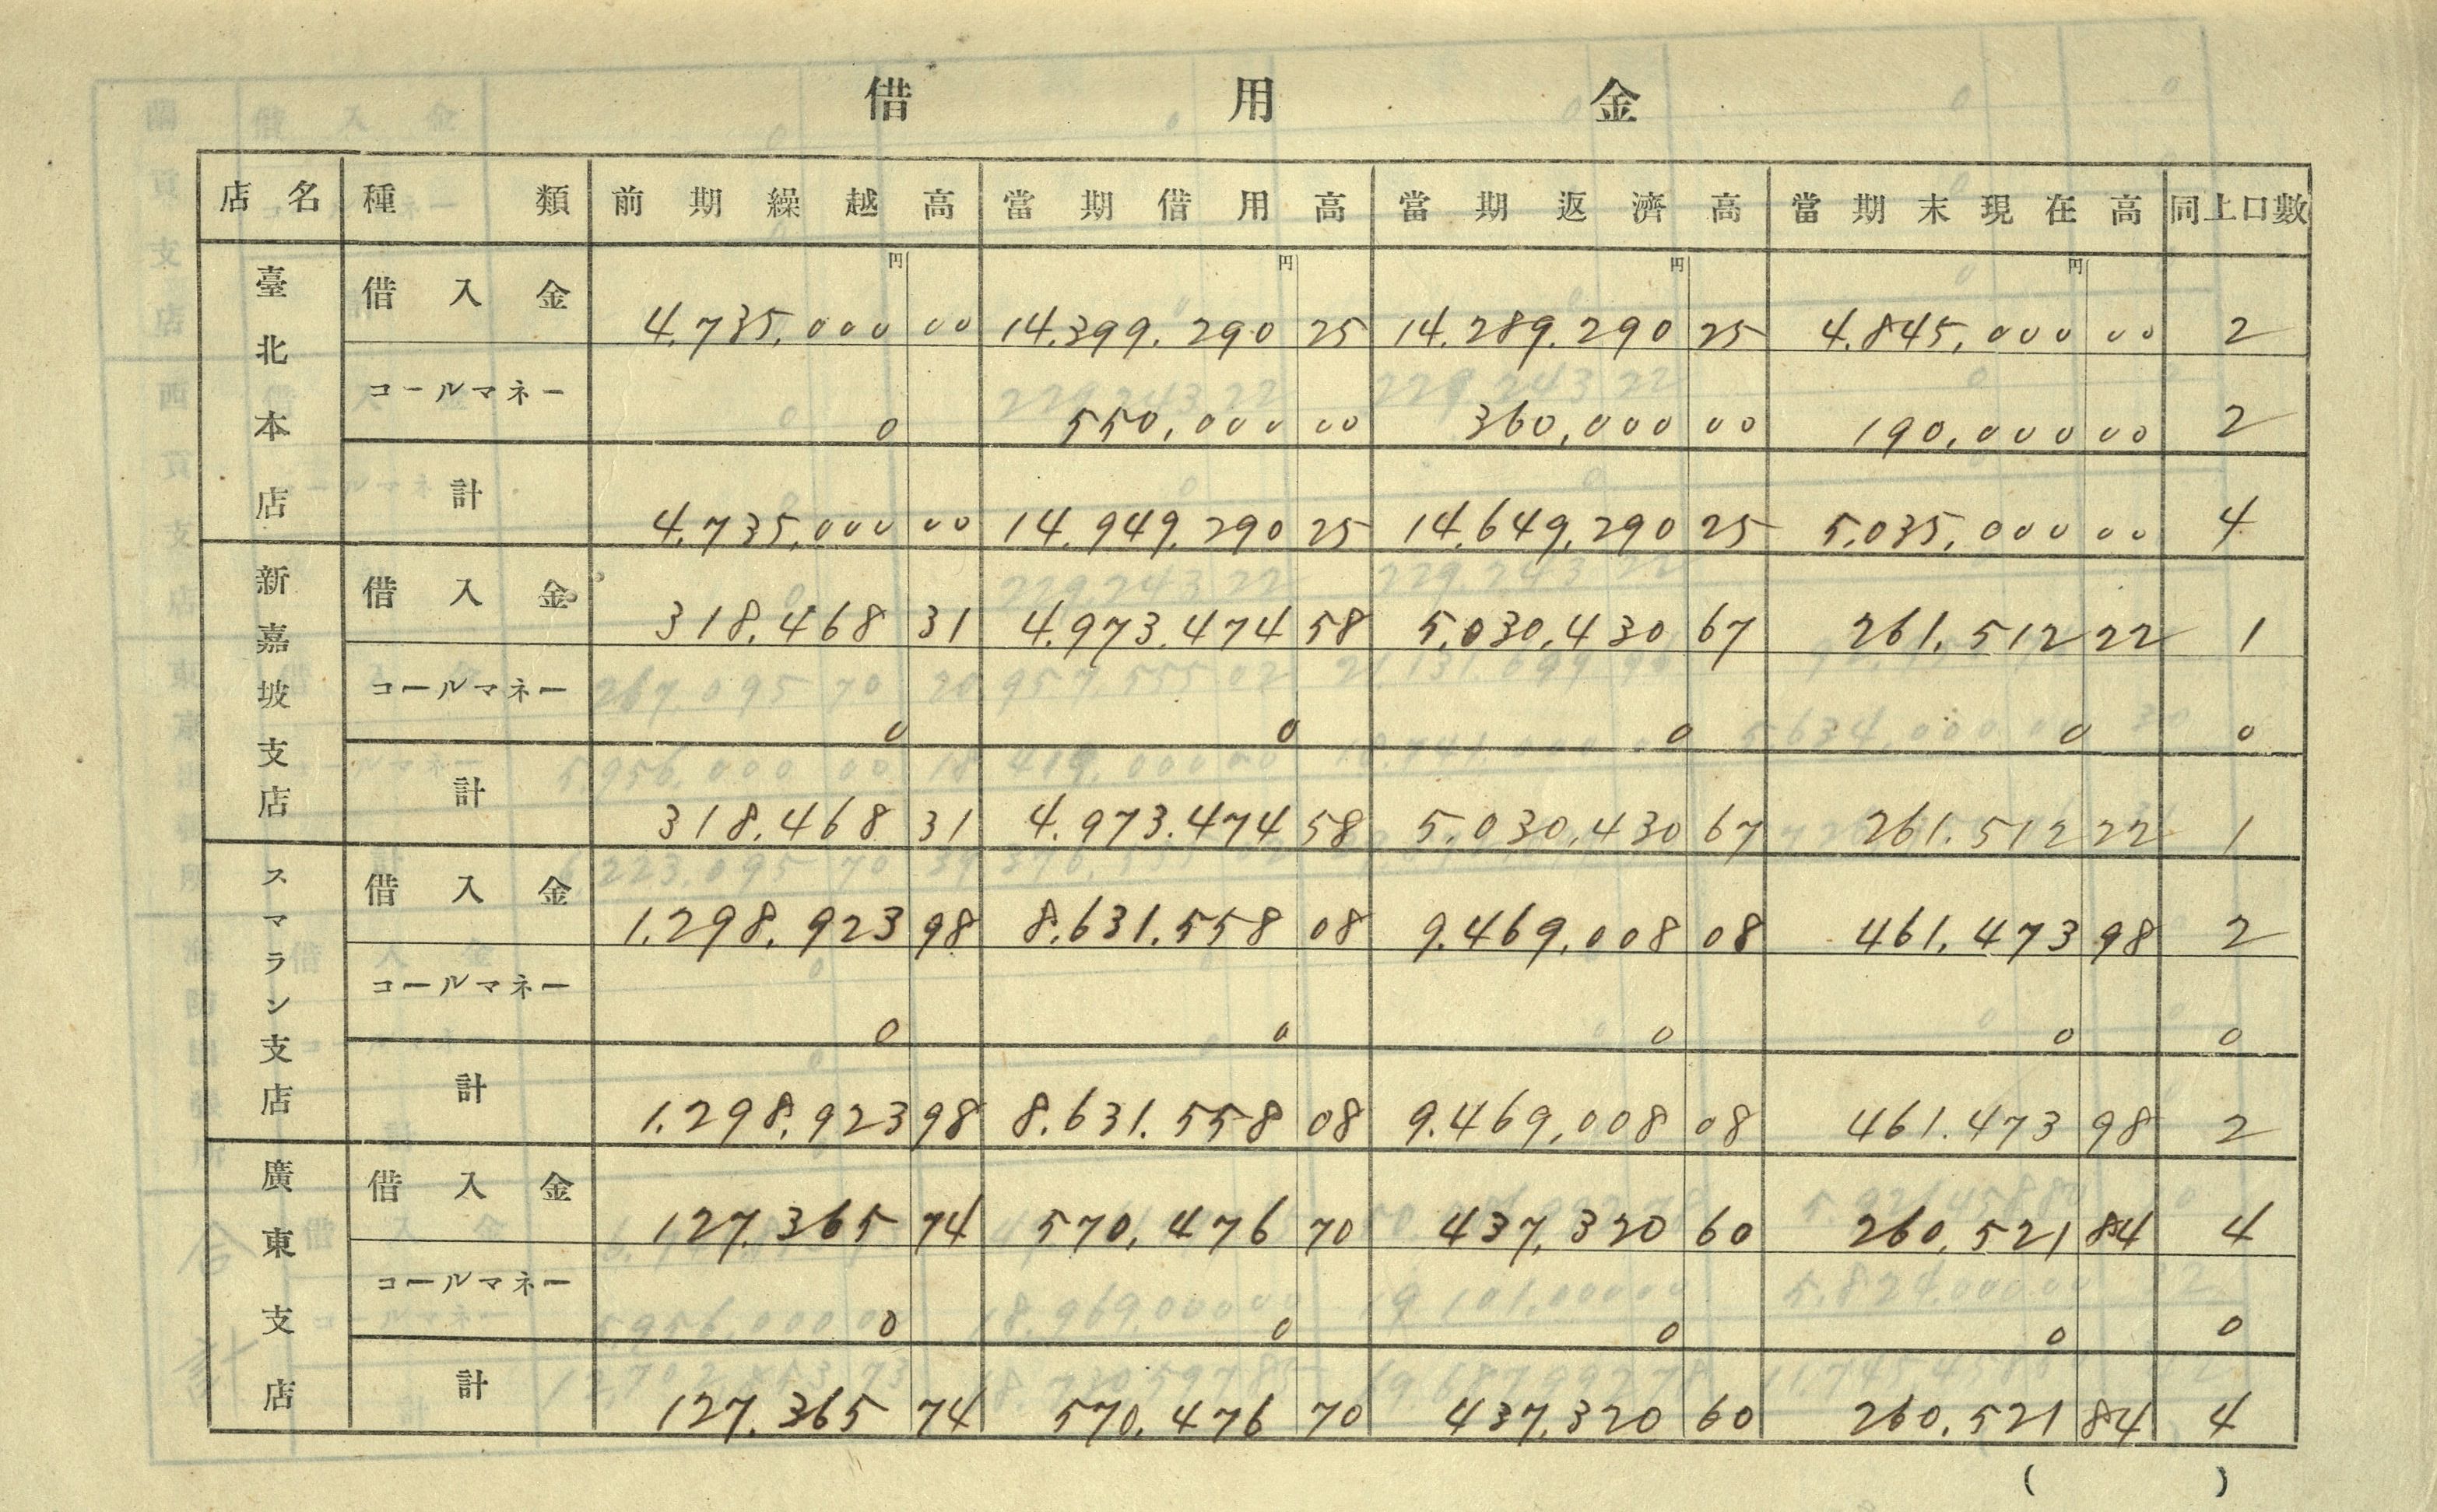 借用金
店名 種類 前期繰越高 當期借用高 當期返濟高 當期末現在高 同上口數
円 円 円 円
臺北本店
借入金 4.735.000 00 14.399.290 25 14.289.290 25 4.845.000 00 2
コールマネー 0 550,000 00 360,000 00 190,000 00 2
計 4.735,000 00 14.949.290 25 14.649.290 25 5.035.000 00 4
新嘉坡支店
借入金 318.468 31 4.973.474 58 5.030.430 67 261.512 22 1
コールマネー 0 0 0 0 0
計 318.468 31 4.973.474 58 5.030.430 67 261.512 22 1
スマラン支店
借入金 1.298.923 98 8.631.558 08 9.469,008 08 461.473 98 2
コールマネー 0 0 0 0 0
計 1.298.923 98 8.631.558 08 9.469,008 08 461.473 98 2
廣東支店
借入金 127.365 74 570.476 70 437.320 60 260.521 84 4
コールマネー 0 0 0 0 0
計 127.365 74 570.476 70 437.320 60 260.521 84 4
( )